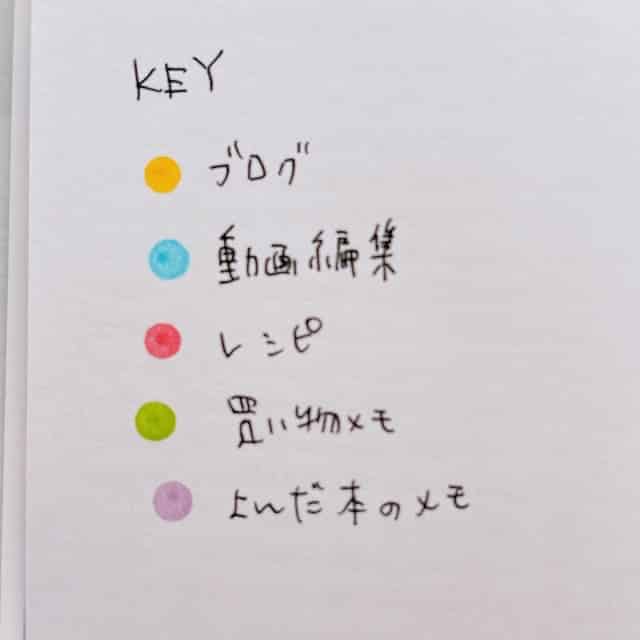 KEY
ブログ
動画編集
レシピ
買い物メモ
よんだ本のメモ